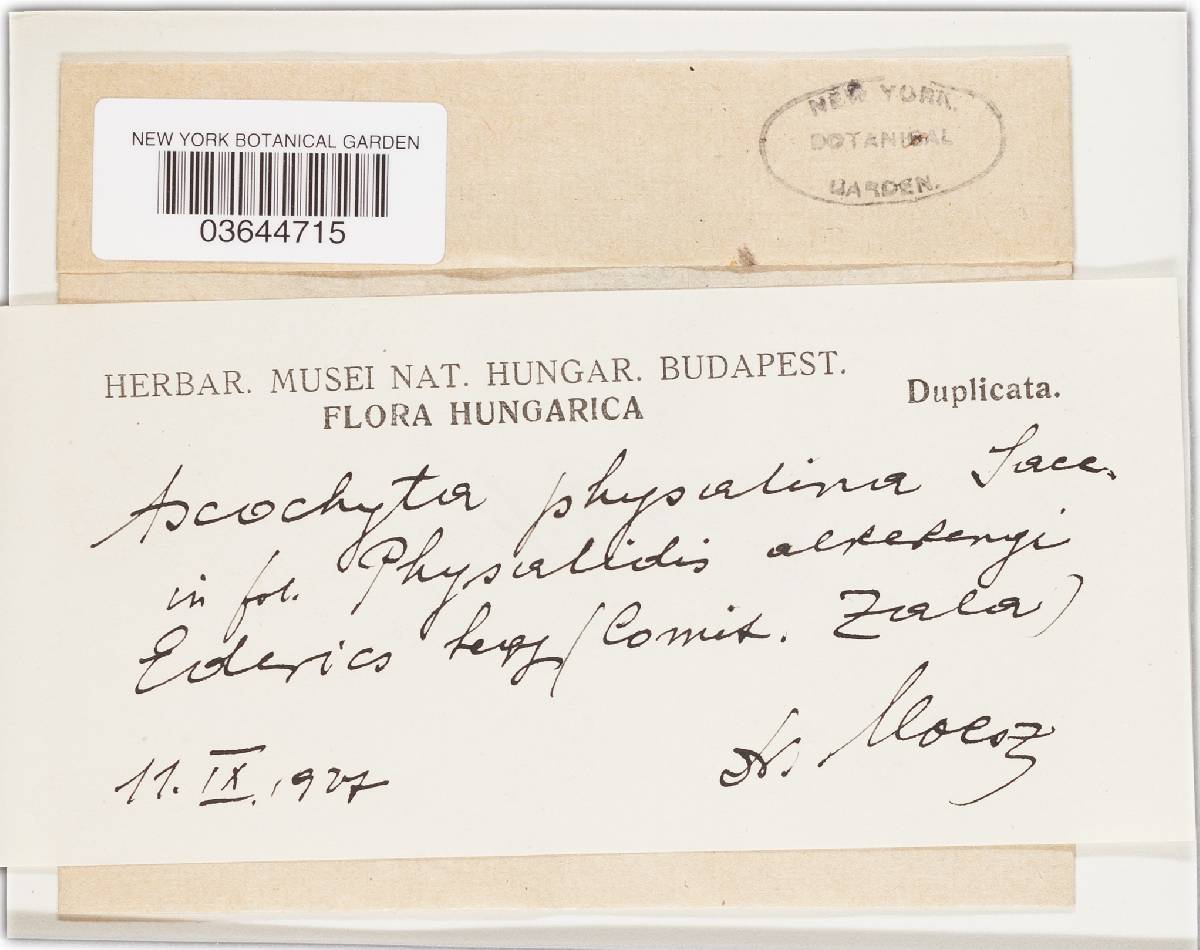 NEW YORK BOTANICAL GARDEN
03644715
NEW YORK.
BOTANICAL
GARDEN.
HERBAR. MUSEI NAT. HUNGAR. BUDAPEST.
FLORA HUNGARICA
Duplicata.
Ascochyta physalina Sacc.
in fol. Physalidis alkekengi
Ederics hegy (Comit. Zala)
11. IX. 1927
Moesz